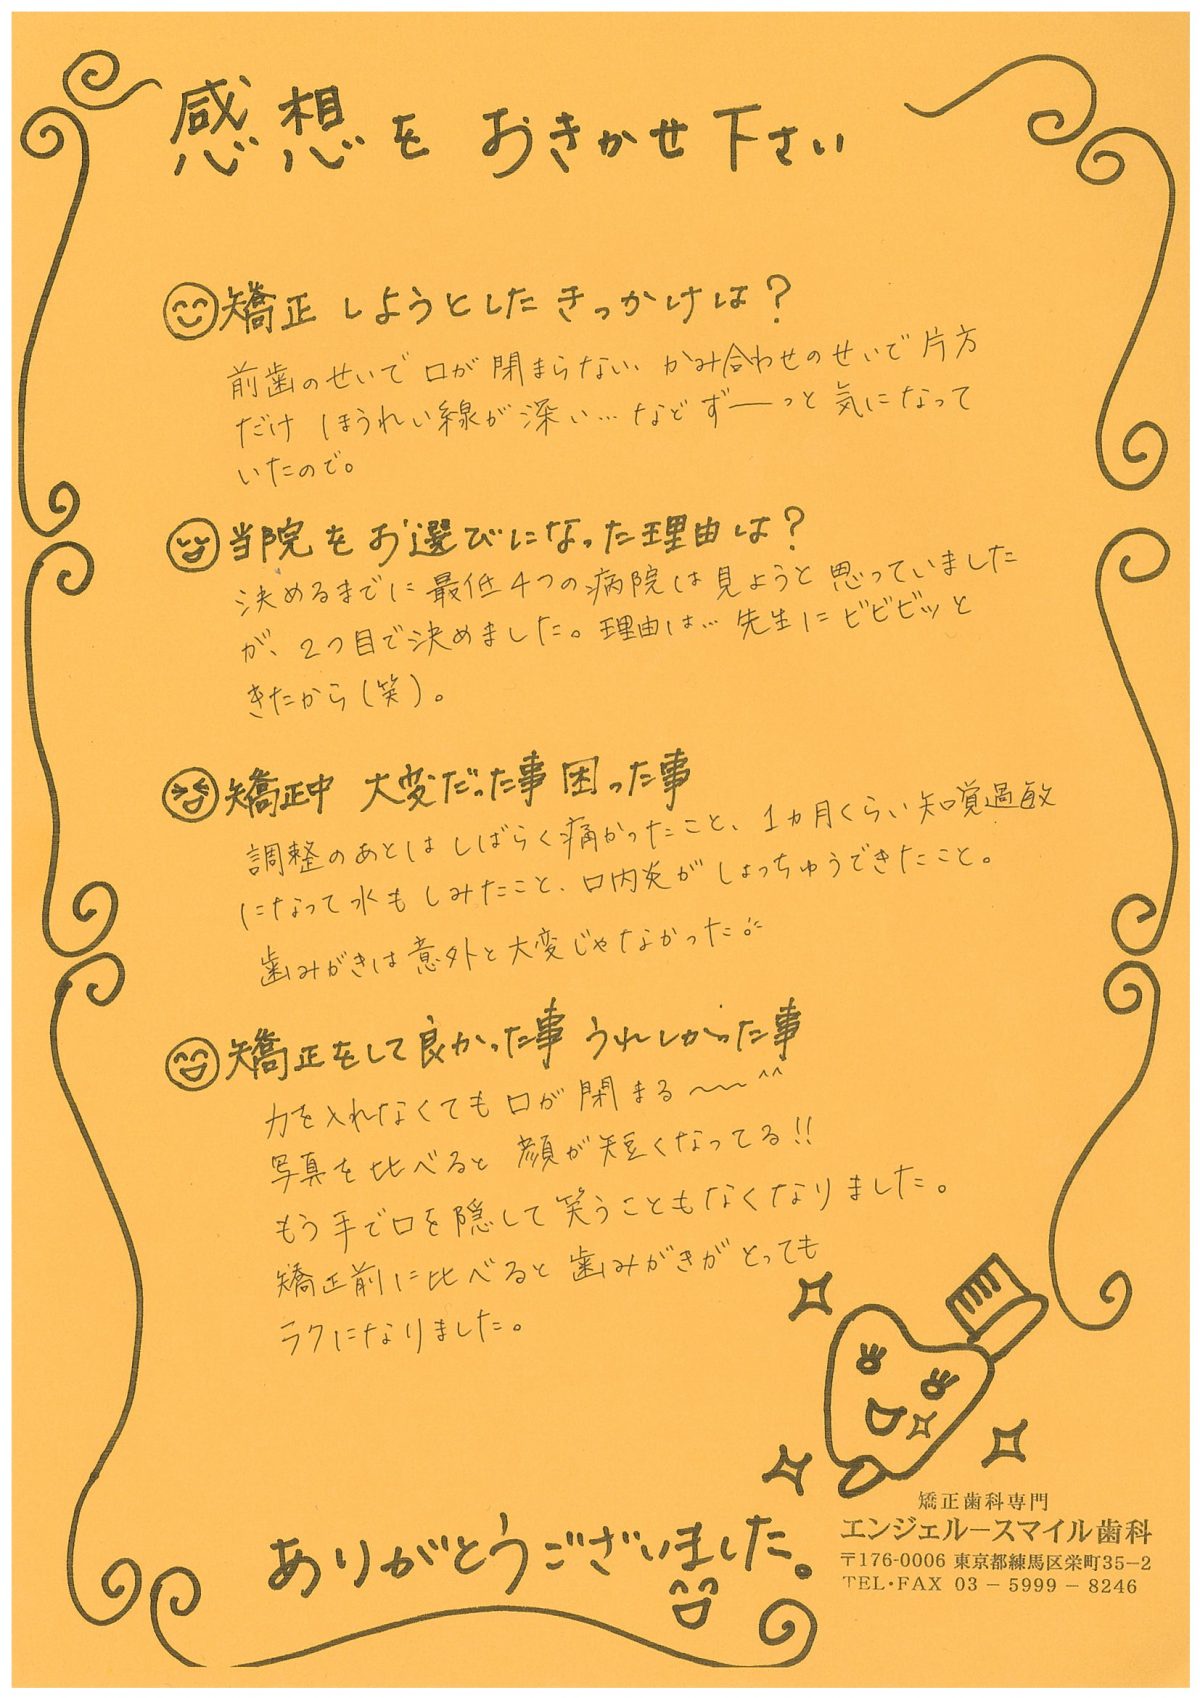 感想を おきかせ下さい
矯正しようとしたきっかけは?
前歯のせいで口が閉まらない、かみ合わせのせいで片方
だけ ほうれい線が深い…などずーっと気になって
いたので。
当院をお選びになった理由は?
決めるまでに最低4つの病院は見ようと思っていました
が、2つ目で決めました。理由は…先生にビビビッと
きたから(笑)。
矯正中 大変だった事 困った事
調整のあとはしばらく痛かったこと、1ヵ月くらい知覚過敏
になって水もしみたこと、口内炎がしょっちゅうできたこと。
歯みがきは意外と大変じゃなかった
矯正をして良かった事 うれしかった事
力を入れなくても口が閉まる〜〜^^
写真を比べると顔が短くなってる!!
もう手で口を隠して笑うこともなくなりました。
矯正前に比べると歯みがきがとっても
ラクになりました。
矯正歯科専門
エンジェルースマイル歯科
〒176-0006 東京都練馬区栄町35-2
TEL・FAX 03-5999-8246
ありがとうございました。